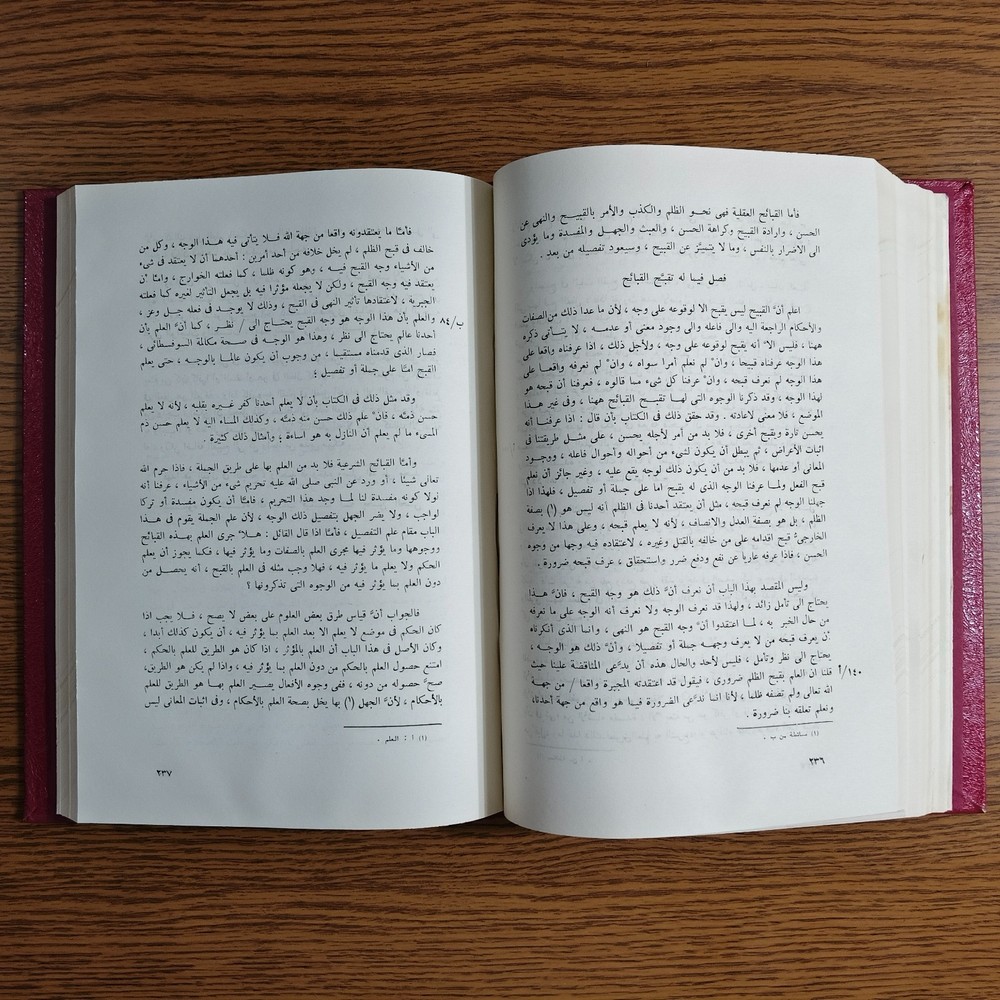 فأما القبائح العقلية فهى نحو الظلم والكذب والأمر بالقبيح والنهى عن
الحسن ، وارادة القبيح وكراهة الحسن ، والعبث والجهل والمفسدة وما يؤدى
الى الاضرار بالنفس ، وما لا يتميَّز عن القبيح ، وسيعود تفصيله من بعد .
فصل فيما له تقبَّح القبائح
اعلم أنَّ القبيح ليس يقبح الا لوقوعه على وجه ، لأن ما عدا ذلك من الصفات
والأحكام الراجعة اليه والى فاعله والى وجود معنى أو عدمه ، لا يتأتى ذكره
ههنا ، فليس الا أنه يقبح لوقوعه على وجه ، ولأجل ذلك ، اذا عرفناه واقعا على
هذا الوجه عرفناه قبيحا ، وان لم نعلم أمرا سواه ، وان لم نعرفه واقعا على
هذا الوجه لم نعرف قبحه ، وان عرفنا كل شىء مما قالوه ، فعرفنا أن قبحه هو
لهذا الوجه ، وقد ذكرنا الوجوه التى لها تقبح القبائح ههنا ، وفى غير هذا
الموضع ، فلا معنى لاعادته . وقد حقق ذلك فى الكتاب بأن قال : اذا عرفنا أنه
يحسن تارة ويقبح أخرى ، فلا بد من أمر لأجله يحسن ، على مثل طريقتنا فى
اثبات الأعراض ، ثم يبطل أن يكون لشىء من أحواله وأحوال فاعله ، ووجود
المعانى أو عدمها ، فلا بد من أن يكون ذلك لوجه يقع عليه ، وغير جائز أن نعلم
قبح الفعل ولما عرفنا الوجه الذى له يقبح اما على جملة أو تفصيل ، فلهذا اذا
جهلنا الوجه لم نعرف قبحه ، مثل أن يعتقد أحدنا فى الظلم أنه ليس هو (١) بصفة
الظلم ، بل هو بصفة العدل والانصاف ، لأنه لا يعلم قبحه ، وعلى هذا لا يعرف
الخارجىّ قبح اقدامه على من خالفه بالقتل وغيره ، لاعتقاده فيه وجها من وجوه
الحسن ، فاذا عرفه عاريا عن نفع ودفع ضرر واستحقاق ، عرف قبحه ضرورة .
وليس المقصد بهذا الباب أن نعرف أنَّ ذلك هو وجه القبح ، فانَّ هذا
يحتاج الى تأمل زائد ، ولهذا قد نعرف الوجه ولا نعرف أنه الوجه على ما نعرفه
من حال الخبر به ، لما اعتقدوا أنَّ وجه القبح هو النهى ، وانما الذى أنكرناه
أن يعرف قبحه من لا يعرف وجهه جملة أو تفصيلا ، وأنَّ ذلك هو الوجه ،
يحتاج الى نظر وتأمل ، فليس لأحد والحال هذه أن يدَّعى المناقضة علينا حيث
١٤٠/أ قلنا ان العلم بقبح الظلم ضرورى ، فيقول قد اعتقدته المجبرة واقعا / من جهة
الله تعالى ولم تصفه ظلما ، لأنا انما ندَّعى الضرورة فيما هو واقع من جهة أحدنا ،
ونعلم تعلقه بنا ضرورة .
(١) ساقطة من ب .
٢٣٦
فأمَّا ما يعتقدونه واقعا من جهة الله فلا يتأتى فيه هذا الوجه ، وكل من
خالف فى قبح الظلم ، لم يخل خلافه من أحد أمرين : أحدهما أن لا يعتقد فى شىء
من الأشياء وجه القبح فيه ، وهو كونه ظلما ، كما فعلته الخوارج ، وامَّا أن
يعتقد فيه وجه القبح ، ولكن لا يجعله مؤثرا فيه بل يجعل التأثير لغيره كما فعلته
الجبرية ، لاعتقادها تأثير النهى فى القبح ، وذلك لا يوجد فى فعله جل وعز ،
٨٤/ب والعلم بأن هذا الوجه هو وجه القبح يحتاج الى / نظر ، كما أنَّ العلم بأن
أحدنا عالم يحتاج الى نظر ، وهذا هو الوجه فى صحة مكالمة السوفسطائى ،
فصار الذى قدمناه مستقيما ، من وجوب أن يكون عالما بالوجه ، حتى يعلم
القبح امَّا على جملة أو تفصيل ؛
وقد مثل ذلك فى الكتاب بأن لا يعلم أحدنا كفر غيره بقلبه ، لأنه لا يعلم
حسن ذمّه ، فانَّ علم ذلك حسن منه ذمّه ، وكذلك المساء اليه لا يعلم حسن ذم
المسىء ما لم يعلم أن النازل به هو اساءة ؛ وأمثال ذلك كثيرة .
وأمَّا القبائح الشرعية فلا بد من العلم بها على طريق الجملة ، فاذا حرم الله
تعالى شيئًا ، أو ورد عن النبى صلى الله عليه تحريم شىء من الأشياء ، عرفنا أنه
لولا كونه مفسدة لنا لما وجد هذا التحريم ، فامَّا أن يكون مفسدة أو تركا
لواجب ، ولا يضر الجهل بتفصيل ذلك الوجه ، لأن علم الجملة يقوم فى هذا
الباب مقام علم التفصيل ، فأمَّا اذا قال القائل : هلا جرى العلم بهذه القبائح
ووجوهها وما يؤثر فيها مجرى العلم بالصفات وما يؤثر فيها ، فكما يجوز أن يعلم
الحكم ولا يعلم ما يؤثر فيه ، فهلا وجب مثله فى العلم بالقبح ، أنه يحصل من
دون العلم بما يؤثر فيه من الوجوه التى تذكرونها ؟
فالجواب أنَّ قياس طرق بعض العلوم على بعض لا يصح ، فلا يجب اذا
كان الحكم فى موضع لا يعلم الا بعد العلم بما يؤثر فيه ، أن يكون كذلك أبدا ،
وكان الأصل فى هذا الباب أن العلم بالمؤثر ، اذا كان هو الطريق للعلم بالحكم ،
امتنع حصول العلم بالحكم من دون العلم بما يؤثر فيه ، واذا لم يكن هو الطريق،
صحَّ حصوله من دونه ، ففى وجوه الأفعال يصير العلم بها هو الطريق للعلم
بالأحكام ، لأنَّ الجهل (١) بها يخل بصحة العلم بالأحكام ، وفى اثبات المعانى ليس
(١) أ : العلم .
٢٣٧